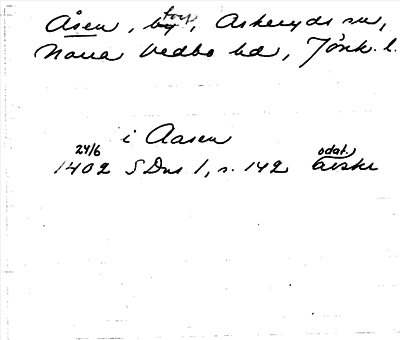 Åsen, torp, Askeryds sn,
Norra Vedbo hd, Jönk. l.
i Aasen
24/6 odat.
1402 SDns 1, s. 142 avskr